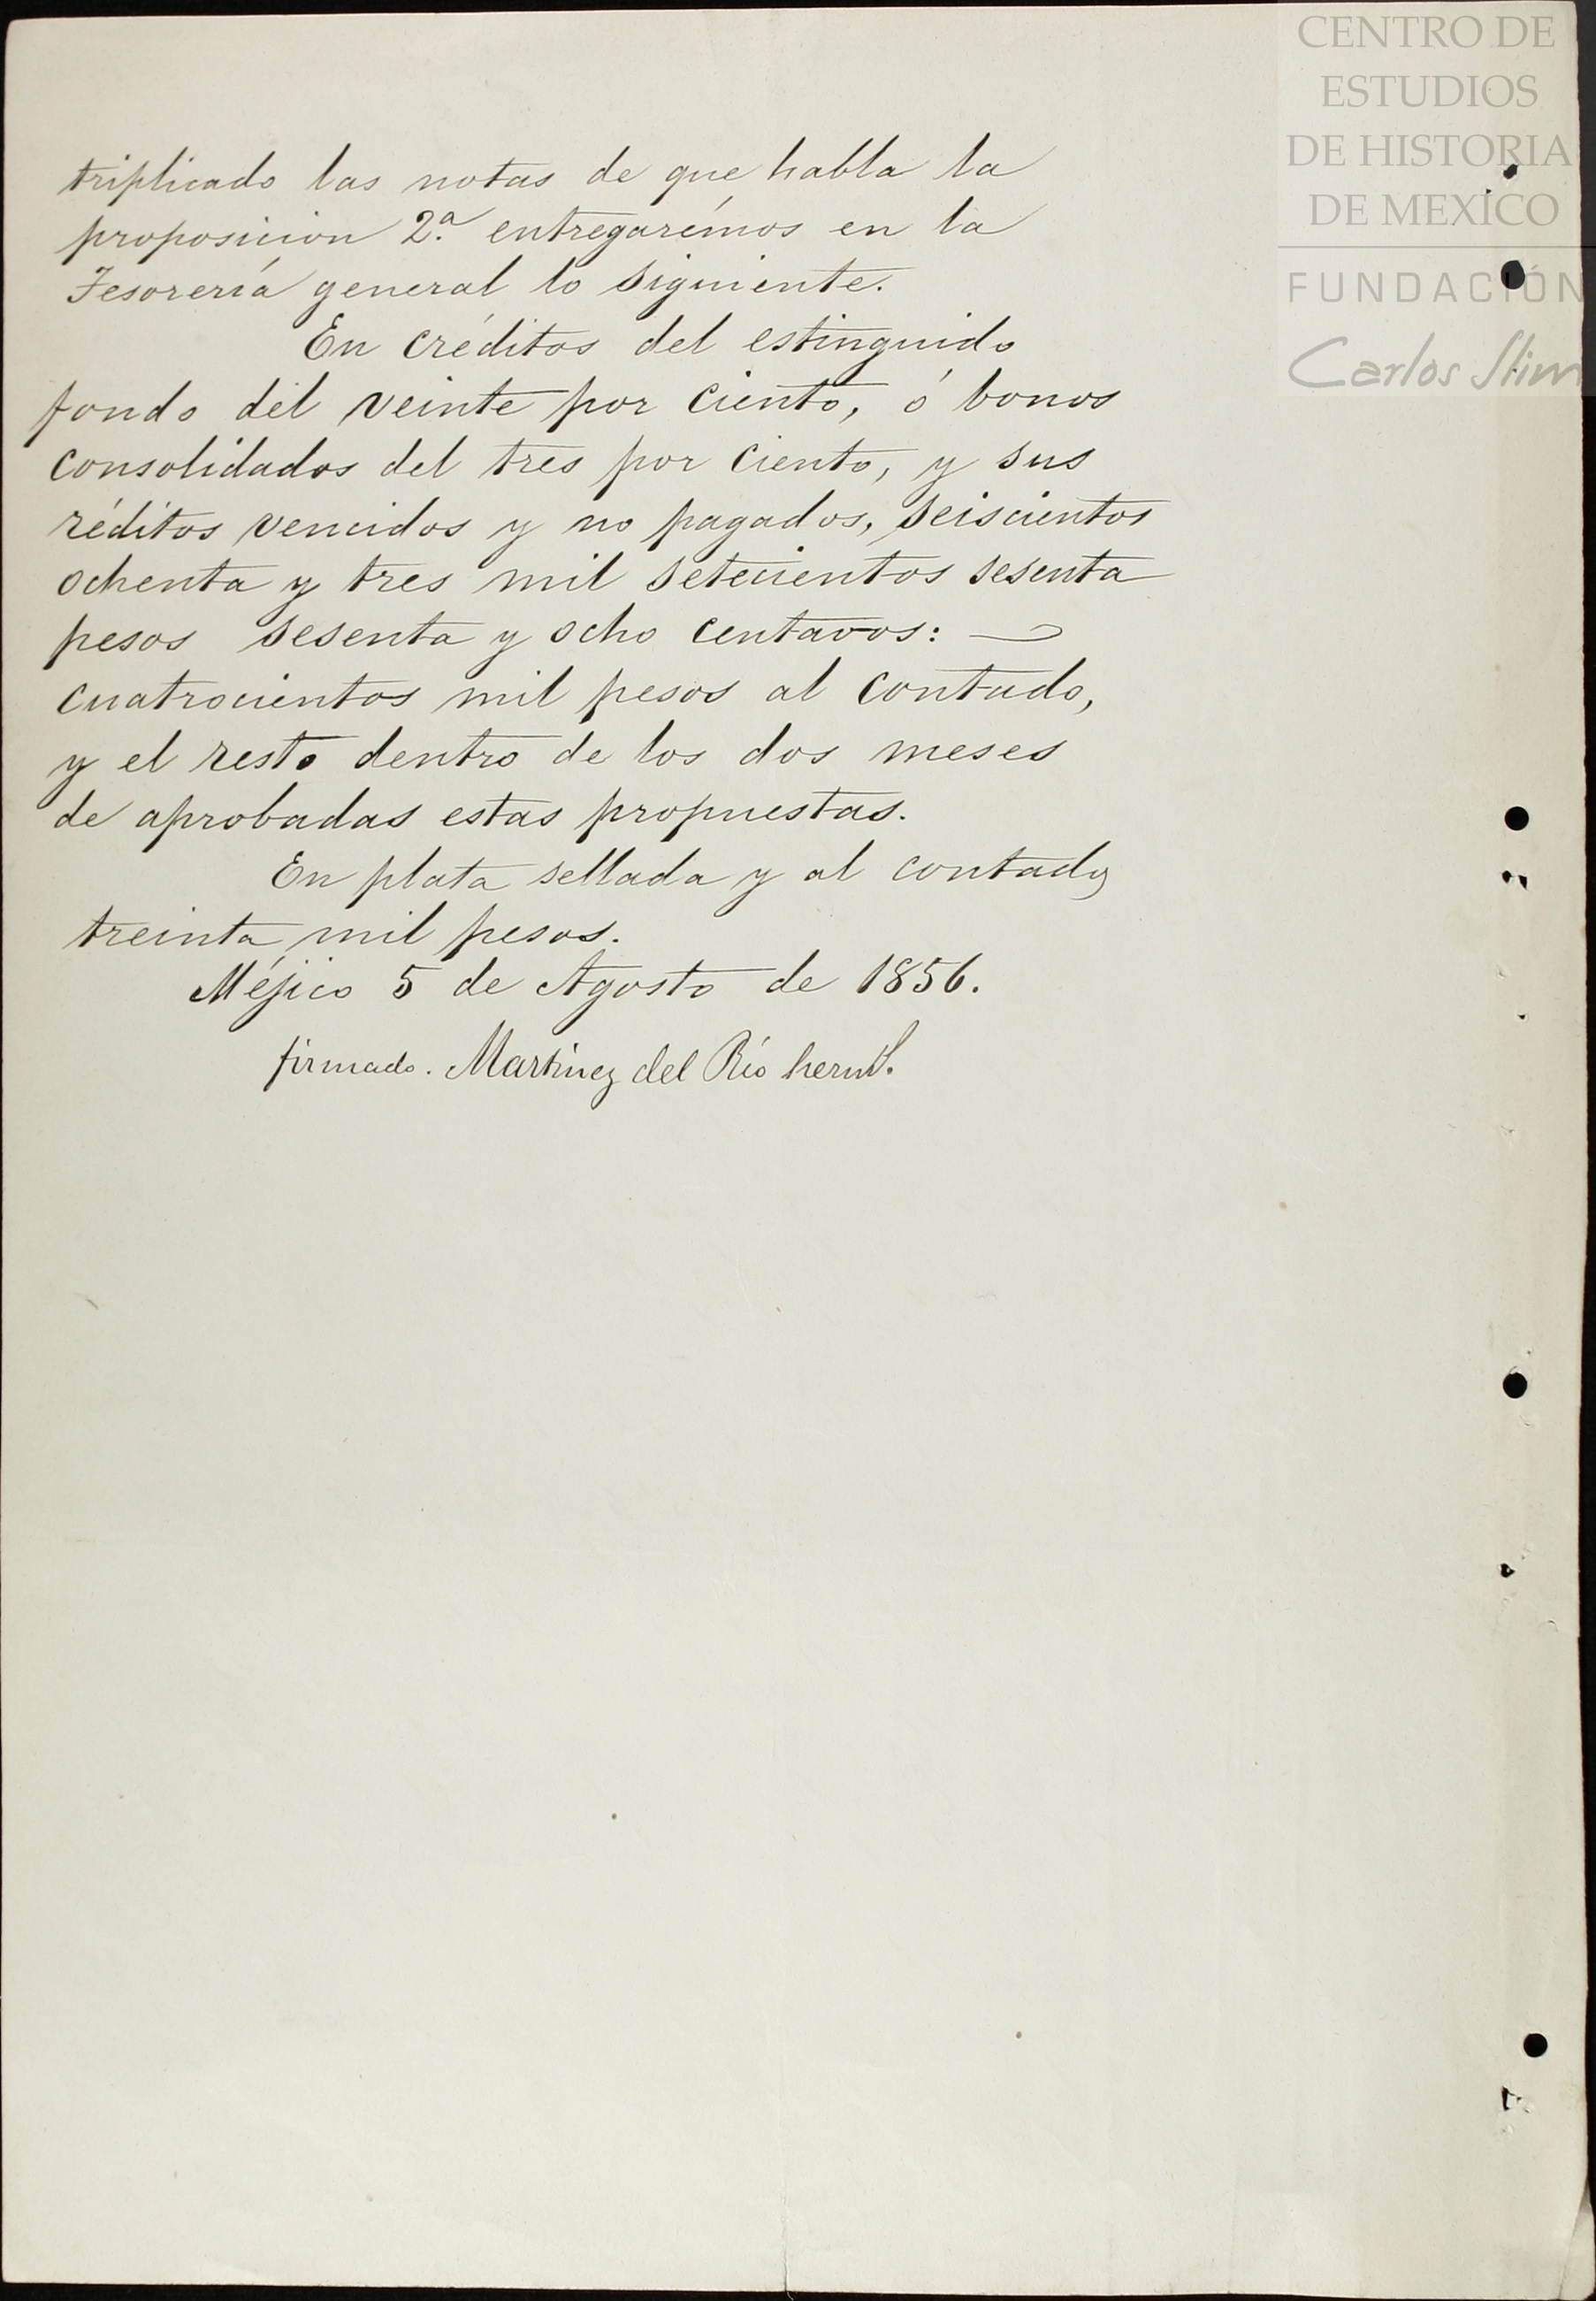 triplicado las notas de que habla la
proposicion 2.ª entregarémos en la
Tesorería general lo siguiente.
En créditos del estinguido
fondo del veinte por ciento, ó bonos
consolidados del tres por ciento, y sus
réditos vencidos y no pagados, seiscientos
ochenta y tres mil setecientos sesenta
pesos sesenta y ocho centavos: —
cuatrocientos mil pesos al contado,
y el resto dentro de los dos meses
de aprobadas estas propuestas.
En plata sellada y al contado,
treinta mil pesos.
Méjico 5 de Agosto de 1856.
firmado. Martinez del Río herms.
CENTRO DE
ESTUDIOS
DE HISTORIA
DE MEXICO
FUNDACIÓN
Carlos Slim